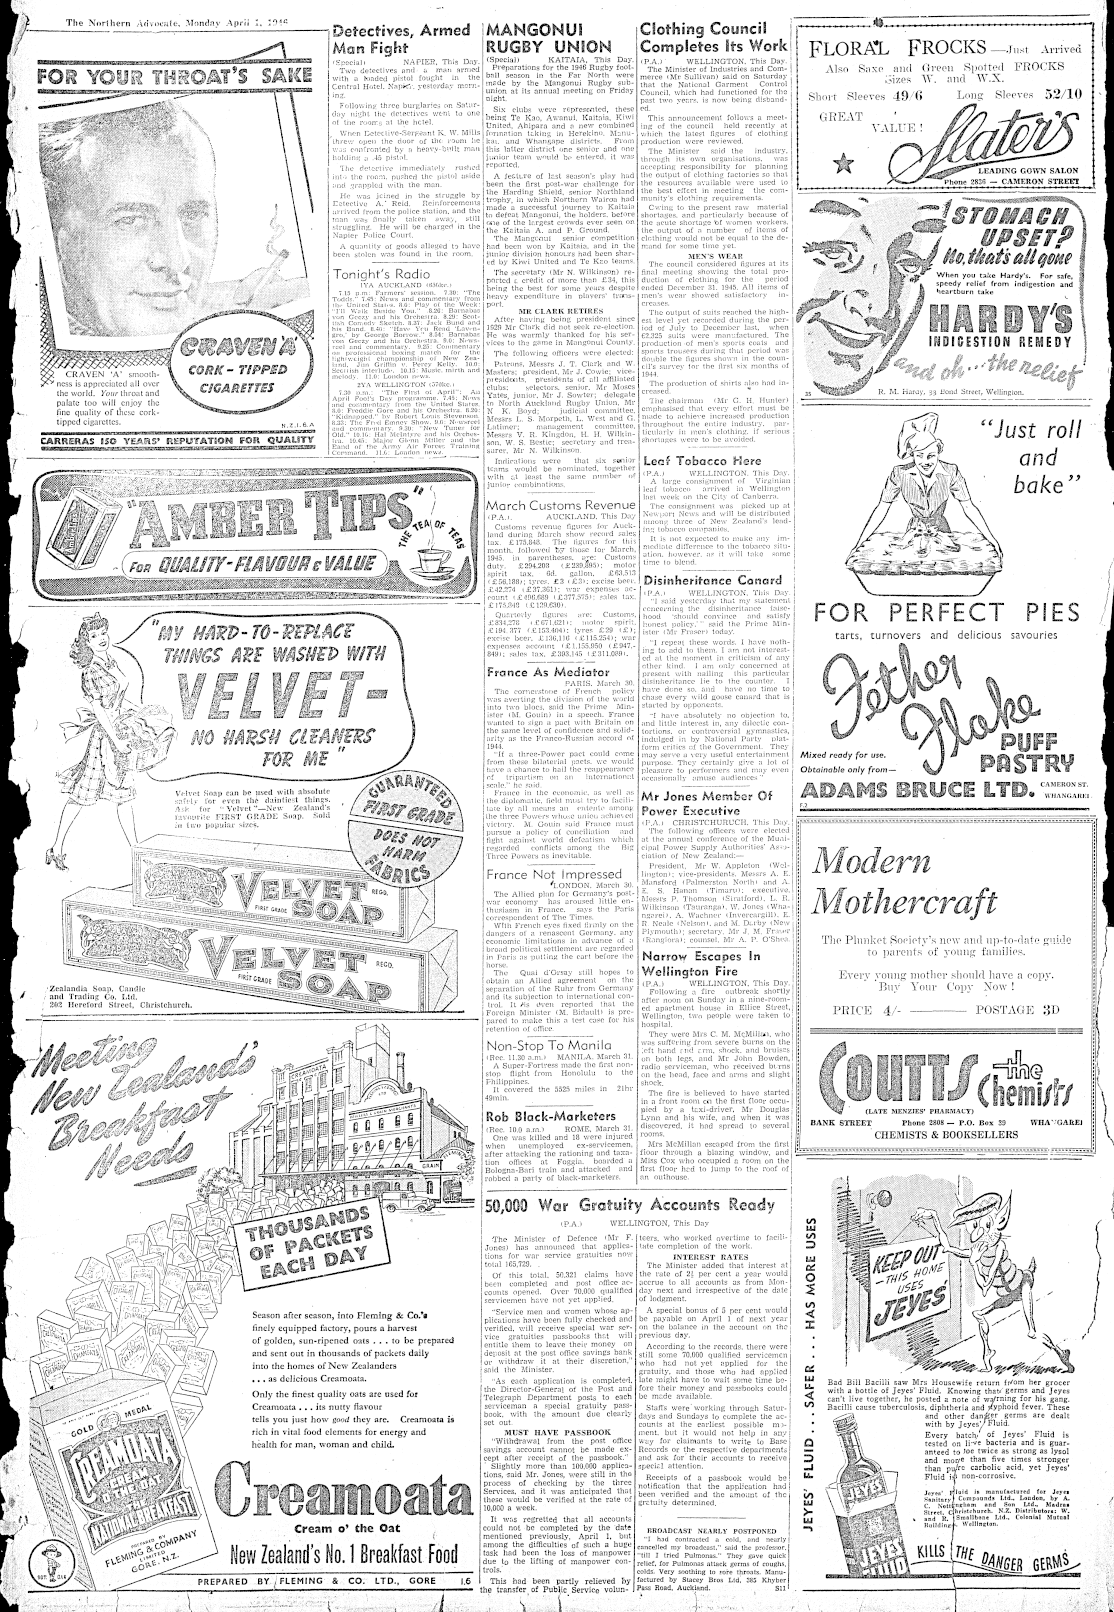 The Northern Advocate, Monday April 1, 1946
FOR YOUR THROAT'S SAKE
CRAVEN 'A'
CORK - TIPPED
CIGARETTES
CRAVEN 'A' smooth-
ness is appreciated all over
the world. Your throat and
palate too will enjoy the
fine quality of these cork-
tipped cigarettes.
N.Z.1.6.A
CARRERAS 150 YEARS' REPUTATION FOR QUALITY
"AMBER TIPS"
THE TEA OF TEAS
FOR QUALITY-FLAVOUR & VALUE
"MY HARD-TO-REPLACE
THINGS ARE WASHED WITH
VELVET-
NO HARSH CLEANERS
FOR ME"
Velvet Soap can be used with absolute
safety for even the daintiest things.
Ask for "Velvet"—New Zealand's
favourite FIRST GRADE Soap. Sold
in two popular sizes.
GUARANTEED
FIRST GRADE
DOES NOT
HARM
FABRICS
VELVET
SOAP
FIRST GRADE
REGD.
VELVET
SOAP
FIRST GRADE
REGD.
Zealandia Soap, Candle
and Trading Co. Ltd.
202 Hereford Street, Christchurch.
Meeting
New Zealand's
Breakfast
Needs
CREAMOATA
GRAIN
THOUSANDS
OF PACKETS
EACH DAY
Season after season, into Fleming & Co.'s
finely equipped factory, pours a harvest
of golden, sun-ripened oats . . . to be prepared
and sent out in thousands of packets daily
into the homes of New Zealanders
. . . as delicious Creamoata.
Only the finest quality oats are used for
Creamoata . . . its nutty flavour
tells you just how good they are. Creamoata is
rich in vital food elements for energy and
health for man, woman and child.
GOLD MEDAL
CREAMOATA
NATIONAL BREAKFAST
PREPARED BY
FLEMING & COMPANY
LIMITED
GORE. N.Z.
Creamoata
Cream o' the Oat
New Zealand's No. 1 Breakfast Food
PREPARED BY FLEMING & CO. LTD., GORE 1.6
Detectives, Armed
Man Fight
(Special) NAPIER, This Day.
Two detectives and a man armed
with a loaded pistol fought in the
Central Hotel, Napier, yesterday morn-
ing.
Following three burglaries on Satur-
day night the detectives went to one
of the rooms at the hotel.
When Detective-Sergeant K. W. Mills
threw open the door of the room he
was confronted by a heavy-built man
holding a .45 pistol.
The detective immediately rushed
into the room, pushed the pistol aside
and grappled with the man.
He was joined in the struggle by
Detective A. Reid. Reinforcements
arrived from the police station, and the
man was finally taken away, still
struggling. He will be charged in the
Napier Police Court.
A quantity of goods alleged to have
been stolen was found in the room.
Tonight's Radio
1YA AUCKLAND (650kc.)
7.15 p.m. Farmers' session. 7.30: "The
Todds." 7.45: News and commentary from
the United States. 8.0: Play of the Week:
"I'll Walk Beside You." 8.26: Barnabas
von Geczy and his Orchestra. 8.29: Scot-
tish Comedy Sketch. 8.37: Jack Hund and
his Band. 8.41: "Have You Read 'Laven-
gro,' by George Borrow." 8.54: Barnabas
von Geczy and his Orchestra. 9.0: News-
reel and commentary. 9.25: Commentary
on professional boxing match for the
lightweight championship of New Zea-
land, Jim Griffin v. Percy Kelly. 10.0:
Scottish interlude. 10.15: Music, mirth and
melody. 11.0: London news.
2YA WELLINGTON (570kc.)
7.30 p.m.: "The First of April": An
April Fool's Day programme. 7.45: News
and commentary from the United States.
8.0: Freddie Gore and his Orchestra. 8.20:
"Kidnapped," by Robert Louis Stevenson.
8.33: The Fred Emney Show. 9.0: Newsreel
and commentary. 9.30: "New Tunes for
Old." 10.16: Hal McIntyre and his Orches-
tra. 10.45: Major Glenn Miller and the
Band of the Army Air Forces Training
Command. 11.0: London news.
MANGONUI
RUGBY UNION
(Special) KAITAIA, This Day.
Preparations for the 1946 Rugby foot-
ball season in the Far North were
made by the Mangonui Rugby sub-
union at its annual meeting on Friday
night.
Six clubs were represented, these
being Te Kao, Awanui, Kaitaia, Kiwi
United, Ahipara and a new combined
formation taking in Herekino, Manu-
kau, and Whangape districts. From
this latter district one senior and one
junior team would be entered, it was
reported.
A feature of last season's play had
been the first post-war challenge for
the Harding Shield, senior Northland
trophy, in which Northern Wairoa had
made a successful journey to Kaitaia
to defeat Mangonui, the holders, before
one of the largest crowds ever seen on
the Kaitaia A. and P. Ground.
The Mangonui senior competition
had been won by Kaitaia, and in the
junior division honours had been shar-
ed by Kiwi United and Te Kao teams.
The secretary (Mr N. Wilkinson) re-
ported a credit of more than £34, this
being the best for some years despite
heavy expenditure in players' trans-
port.
MR CLARK RETIRES
After having been president since
1929 Mr Clark did not seek re-election.
He was warmly thanked for his ser-
vices to the game in Mangonui County.
The following officers were elected:
Patrons, Messrs J. T. Clark and W.
Masters; president, Mr J. Cowie; vice-
presidents, presidents of all affiliated
clubs; selectors, senior, Mr Moses
Yates, junior, Mr J. Sowter; delegate
to North Auckland Rugby Union, Mr
N. K. Boyd; judicial committee,
Messrs L. S. Morpeth, L. West and G.
Latimer; management committee,
Messrs V. R. Kingdon, H. H. Wilkin-
son, W. S. Bestic; secretary and trea-
surer, Mr N. Wilkinson.
Indications were that six senior
teams would be nominated, together
with at least the same number of
junior combinations.
March Customs Revenue
(P.A.). AUCKLAND, This Day
Customs revenue figures for Auck-
land during March show record sales
tax, £175,848. The figures for this
month, followed by those for March,
1945, in parentheses, are: Customs
duty, £294,203 (£239,895); motor
spirit tax, 6d. gallon, £63,513
(£56,188); tyres, £3 (£3); excise beer,
£42,274 (£37,361); war expenses ac-
count (£496,689 (£377,575); sales tax,
£175,343 (£129,630).
Quarterly figures are: Customs,
£834,276 (£671,621); motor spirit,
£194,377 (£153,404); tyres £29 (£);
excise beer, £136,116 (£115,254); war
expenses account (£1,155,950 (£947,-
849); sales tax, £393,145 (£311,089).
France As Mediator
PARIS, March 30.
The cornerstone of French policy
was averting the division of the world
into two blocs, said the Prime Min-
ister (M. Gouin) in a speech. France
wanted to sign a pact with Britain on
the same level of confidence and solid-
arity as the Franco-Russian accord of
1944.
"If a three-Power pact could come
from these bilateral pacts, we would
have a chance to halt the reappearance
of tripartism on an international
scale," he said.
France in the economic, as well as
the diplomatic, field must try to facili-
tate by all means an entente among
the three Powers whose union achieved
victory. M. Gouin said France must
pursue a policy of conciliation and
fight against world defeatism which
regarded conflicts among the Big
Three Powers as inevitable.
France Not Impressed
LONDON, March 30.
The Allied plan for Germany's post-
war economy has aroused little en-
thusiasm in France, says the Paris
correspondent of The Times.
With French eyes fixed firmly on the
dangers of a renascent Germany, any
economic limitations in advance of a
broad political settlement are regarded
in Paris as putting the cart before the
horse.
The Quai d'Orsay still hopes to
obtain an Allied agreement on the
separation of the Ruhr from Germany
and its subjection to international con-
trol. It is even reported that the
Foreign Minister (M. Bidault) is pre-
pared to make this a test case for his
retention of office.
Non-Stop To Manila
(Rec. 11.30 a.m.) MANILA, March 31.
A Super-Fortress made the first non-
stop flight from Honolulu to the
Philippines.
It covered the 5525 miles in 21hr
49min.
Rob Black-Marketers
(Rec. 10.0 a.m.) ROME, March 31.
One was killed and 18 were injured
when unemployed ex-servicemen,
after attacking the rationing and taxa-
tion offices at Foggia, boarded a
Bologna-Bari train and attacked and
robbed a party of black-marketers.
Clothing Council
Completes Its Work
(P.A.) WELLINGTON, This Day.
The Minister of Industries and Com-
merce (Mr Sullivan) said on Saturday
that the National Garment Control
Council, which had functioned for the
past two years, is now being disband-
ed.
This announcement follows a meet-
ing of the council held recently at
which the latest figures of clothing
production were reviewed.
The Minister said the industry,
through its own organisations, was
accepting responsibility for planning
the output of clothing factories so that
the resources available were used to
the best effect in meeting the com-
munity's clothing requirements.
Owing to the present raw material
shortages, and particularly because of
the acute shortage of women workers,
the output of a number of items of
clothing would not be equal to the de-
mand for some time yet.
MEN'S WEAR
The council considered figures at its
final meeting showing the total pro-
duction of clothing for the period
ended December 31, 1945. All items of
men's wear showed satisfactory in-
creases.
The output of suits reached the high-
est level yet recorded during the per-
iod of July to December last, when
62,925 suits were manufactured. The
production of men's sports coats and
sports trousers during that period was
double the figures shown in the coun-
cil's survey for the first six months of
1944.
The production of shirts also had in-
creased.
The chairman (Mr G. H. Hunter)
emphasised that every effort must be
made to achieve increased production
throughout the entire industry, par-
ticularly in men's clothing, if serious
shortages were to be avoided.
Leaf Tobacco Here
(P.A.) WELLINGTON, This Day.
A large consignment of Virginian
leaf tobacco arrived in Wellington
last week on the City of Canberra.
The consignment was picked up at
Newport News and will be distributed
among three of New Zealand's lead-
ing tobacco companies.
It is not expected to make any im-
mediate difference to the tobacco situ-
ation, however, as it will take some
time to blend.
Disinheritance Canard
(P.A.) WELLINGTON, This Day.
"I said yesterday that my statement
concerning the disinheritance false-
hood 'should convince and satisfy
honest policy,'" said the Prime Min-
ister (Mr Fraser) today.
"I repeat these words. I have noth-
ing to add to them. I am not interest-
ed at the moment in criticism of any
other kind. I am only concerned at
present with nailing this particular
disinheritance lie to the counter. I
have done so, and have no time to
chase every wild goose canard that is
started by opponents.
"I have absolutely no objection to,
and little interest in, any dialectic con-
tortions, or controversial gymnastics,
indulged in by National Party plat-
form critics of the Government. They
may serve a very useful entertainment
purpose. They certainly give a lot of
pleasure to performers and may even
occasionally amuse audiences"
Mr Jones Member Of
Power Executive
(P.A.) CHRISTCHURCH, This Day.
The following officers were elected
at the annual conference of the Muni-
cipal Power Supply Authorities' Asso-
ciation of New Zealand:—
President, Mr W. Appleton (Wel-
lington); vice-presidents, Messrs A. E.
Mansford (Palmerston North) and A.
E. S. Hanan (Timaru); executive,
Messrs P. Thomson (Stratford), L. R.
Wilkinson (Tauranga), W. Jones (Wha-
ngarei), A. Wachner (Invercargill), E.
R. Neale (Nelson), and M. Darby (New
Plymouth); secretary, Mr J. M. Fraser
(Rangiora); counsel, Mr A. P. O'Shea.
Narrow Escapes In
Wellington Fire
(P.A.) WELLINGTON, This Day.
Following a fire outbreak shortly
after noon on Sunday in a nine-room-
ed apartment house in Ellice Street,
Wellington, two people were taken to
hospital.
They were Mrs C. M. McMillan, who
was suffering from severe burns on the
left hand and arm, shock, and bruises
on both legs, and Mr John Bowden,
radio serviceman, who received burns
on the head, face and arms and slight
shock.
The fire is believed to have started
in a front room on the first floor occu-
pied by a taxi-driver, Mr Douglas
Lynn and his wife, and when it was
discovered, it had spread to several
rooms.
Mrs McMillan escaped from the first
floor through a blazing window, and
Miss Cox who occupied a room on the
first floor had to jump to the roof of
an outhouse.
50,000 War Gratuity Accounts Ready
(P.A.) WELLINGTON, This Day
The Minister of Defence (Mr F.
Jones) has announced that applica-
tions for war service gratuities now
total 165,729.
Of this total, 50,321 claims have
been completed and post office ac-
counts opened. Over 70,000 qualified
servicemen have not yet applied.
"Service men and women whose ap-
plications have been fully checked and
verified, will receive special war ser-
vice gratuities passbooks that will
entitle them to leave their money on
deposit at the post office savings bank
or withdraw it at their discretion,"
said the Minister.
"As each application is completed,
the Director-General of the Post and
Telegraph Department posts to each
serviceman a special gratuity pass-
book, with the amount due clearly
set out.
MUST HAVE PASSBOOK
"Withdrawal from the post office
savings account cannot be made ex-
cept after receipt of the passbook."
Slightly more than 100,000 applica-
tions, said Mr Jones, were still in the
process of checking by the three
Services, and it was anticipated that
these would be verified at the rate of
10,000 a week.
It was regretted that all accounts
could not be completed by the date
mentioned previously, April 1, but
among the difficulties of such a huge
task had been the loss of manpower
due to the lifting of manpower con-
trols.
This had been partly relieved by
the transfer of Public Service volun-
teers, who worked overtime to facili-
tate completion of the work.
INTEREST RATES
The Minister added that interest at
the rate of 2½ per cent a year would
accrue to all accounts as from Mon-
day next and irrespective of the date
of lodgment.
A special bonus of 5 per cent would
be payable on April 1 of next year
on the balance in the account on the
previous day.
According to the records, there were
still some 70,000 qualified servicemen
who had not yet applied for the
gratuity, and those who had applied
late might have to wait some time be-
fore their money and passbooks could
be made available.
Staffs were working through Satur-
days and Sundays to complete the ac-
counts at the earliest possible mo-
ment, but it would not help in any
way for claimants to write to Base
Records or the respective departments
and ask for their accounts to receive
special attention.
Receipts of a passbook would be
notification that the application had
been verified and the amount of the
gratuity determined.
BROADCAST NEARLY POSTPONED
"I had contracted a cold, and nearly
cancelled my broadcast," said the professor,
"till I tried Pulmonas." They gave quick
relief, for Pulmonas attack germs of coughs,
colds. Very soothing to sore throats. Manu-
factured by Stacey Bros Ltd, 385 Khyber
Pass Road, Auckland. S11
FLORAL FROCKS—Just Arrived
Also Saxe and Green Spotted FROCKS
Sizes W. and W.X.
Short Sleeves 49/6 Long Sleeves 52/10
GREAT
VALUE!
Slater's
LEADING GOWN SALON
Phone 2836 — CAMERON STREET
STOMACH
UPSET?
No, that's all gone
When you take Hardy's. For safe,
speedy relief from indigestion and
heartburn take
HARDY'S
INDIGESTION REMEDY
and oh...the relief
R. M. Hardy, 33 Bond Street, Wellington.
35
"Just roll
and
bake"
FOR PERFECT PIES
tarts, turnovers and delicious savouries
Fether
Flake
PUFF
PASTRY
Mixed ready for use.
Obtainable only from—
ADAMS BRUCE LTD. CAMERON ST.
WHANGAREI
F.2
Modern
Mothercraft
The Plunket Society's new and up-to-date guide
to parents of young families.
Every young mother should have a copy.
Buy Your Copy Now !
PRICE 4/- ——— POSTAGE 3D
COUTTS the Chemists
(LATE MENZIES' PHARMACY)
BANK STREET Phone 2808 — P.O. Box 39 WHANGAREI
CHEMISTS & BOOKSELLERS
JEYES' FLUID . . . SAFER . . . HAS MORE USES
KEEP OUT
—THIS HOME
USES
JEYES'
Bad Bill Bacilli saw Mrs Housewife return from her grocer
with a bottle of Jeyes' Fluid. Knowing that germs and Jeyes
can't live together, he posted a note of warning for his gang.
Bacilli cause tuberculosis, diphtheria and typhoid fever. These
and other danger germs are dealt
with by Jeyes' Fluid.
Every batch of Jeyes' Fluid is
tested on live bacteria and is guar-
anteed to be twice as strong as lysol
and more than five times stronger
than pure carbolic acid, yet Jeyes'
Fluid is non-corrosive.
Jeyes' Fluid is manufactured for Jeyes
Sanitary Compounds Ltd., London, by A.
C. Nottingham and Son Ltd., Madras
Street, Christchurch. N.Z. Distributors: W.
and R. Smallbone Ltd., Colonial Mutual
Buildings, Wellington.
JEYES'
JEYES'
FLUID
KILLS THE DANGER GERMS